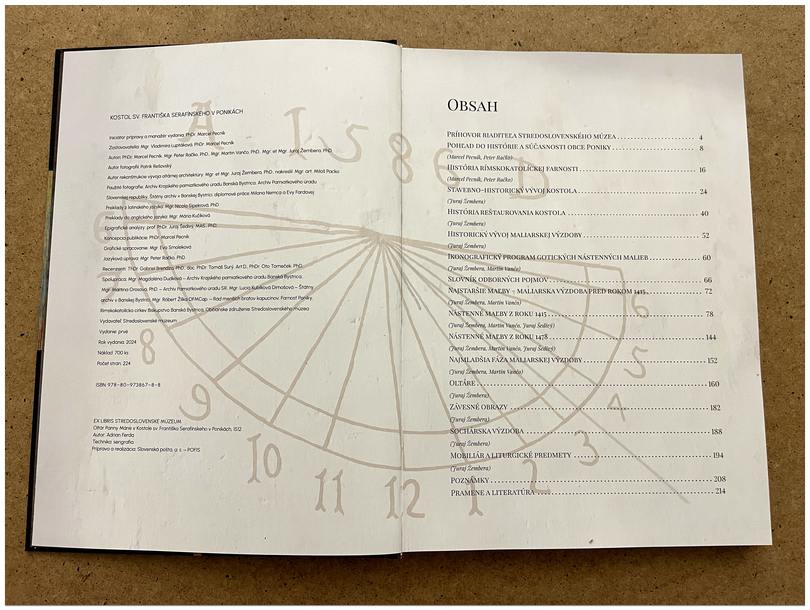 KOSTOL SV. FRANTIŠKA SERAFÍNSKEHO V PONIKÁCH
Iniciátor prípravy a manažér vydania: PhDr. Marcel Pecník
Zostavovatelia: Mgr. Vladimíra Luptáková, PhDr. Marcel Pecník
Autori: PhDr. Marcel Pecník, Mgr. Peter Račko, PhD., Mgr. Martin Vančo, PhD., Mgr. et Mgr. Juraj Žembera, PhD.
Autor fotografií: Patrik Rešovský
Autor rekonštrukcie vývoja ohárnej architektúry: Mgr. et Mgr. Juraj Žembera, PhD., nakreslil: Mgr. art. Miloš Packo
Použité fotografie: Archív Krajského pamiatkového úradu Banská Bystrica, Archív Pamiatkového úradu
Slovenskej republiky, Štátny archív v Banskej Bystrici, diplomové práce Milana Nemca a Evy Fardovej
Preklady z latinského jazyka: Mgr. Nicola Sipeková, PhD.
Preklady do anglického jazyka: Mgr. Mária Kučíková
Epigrafické analýzy: prof. PhDr. Juraj Šedivý, MAS., PhD.
Koncepcia publikácie: PhDr. Marcel Pecník
Grafické spracovanie: Mgr. Eva Smoleková
Jazyková úprava: Mgr. Peter Račko, PhD.
Recenzenti: ThDr. Gabriel Brendza, PhD., doc. PhDr. Tomáš Surý, Art.D., PhDr. Oto Tomeček, PhD.
Spolupráca: Mgr. Magdaléna Dudková – Archív Krajského pamiatkového úradu Banská Bystrica,
Mgr. Martina Orosová, PhD. – Archív Pamiatkového úradu SR, Mgr. Lucia Kubíková Drnošová – Štátny
archív v Banskej Bystrici, Mgr. Róbert Žilka OFMCap. – Rád menších bratov kapucínov, Farnosť Poniky,
Rímskokatolícka cirkev Biskupstvo Banská Bystrica, Občianske združenie Stredoslovenského múzea
Vydavateľ: Stredoslovenské múzeum
Vydanie: prvé
Rok vydania: 2024
Náklad: 700 ks
Počet strán: 224
ISBN: 978-80-973867-8-8
EX LIBRIS STREDOSLOVENSKÉ MÚZEUM,
Oltár Panny Márie v Kostole sv. Františka Serafínskeho v Ponikách, 1512
Autor: Adrian Ferda
Technika: serigrafia
Príprava a realizácia: Slovenská pošta, a. s. – POFIS
OBSAH
PRÍHOVOR RIADITEĽA STREDOSLOVENSKÉHO MÚZEA 4
POHĽAD DO HISTÓRIE A SÚČASNOSTI OBCE PONIKY 8
(Marcel Pecník, Peter Račko)
HISTÓRIA RÍMSKOKATOLÍCKEJ FARNOSTI 16
(Marcel Pecník, Peter Račko)
STAVEBNO-HISTORICKÝ VÝVOJ KOSTOLA 24
(Juraj Žembera)
HISTÓRIA REŠTAUROVANIA KOSTOLA 40
(Juraj Žembera)
HISTORICKÝ VÝVOJ MALIARSKEJ VÝZDOBY 52
(Juraj Žembera)
IKONOGRAFICKÝ PROGRAM GOTICKÝCH NÁSTENNÝCH MALIEB 60
(Juraj Žembera, Martin Vančo)
SLOVNÍK ODBORNÝCH POJMOV 66
NAJSTARŠIE MAĽBY – MALIARSKA VÝZDOBA PRED ROKOM 1415 72
(Juraj Žembera, Martin Vančo)
NÁSTENNÉ MAĽBY Z ROKU 1415 78
(Juraj Žembera, Martin Vančo, Juraj Šedivý)
NÁSTENNÉ MAĽBY Z ROKU 1478 144
(Juraj Žembera, Martin Vančo, Juraj Šedivý)
NAJMLADŠIA FÁZA MALIARSKEJ VÝZDOBY 152
(Juraj Žembera, Martin Vančo)
OLTÁRE 160
(Juraj Žembera)
ZÁVESNÉ OBRAZY 182
(Juraj Žembera)
SOCHÁRSKA VÝZDOBA 188
(Juraj Žembera)
MOBILIÁR A LITURGICKÉ PREDMETY 194
(Juraj Žembera)
POZNÁMKY 208
PRAMENE A LITERATÚRA 214
8
9
10
11
12
1
2
3
4
5
6